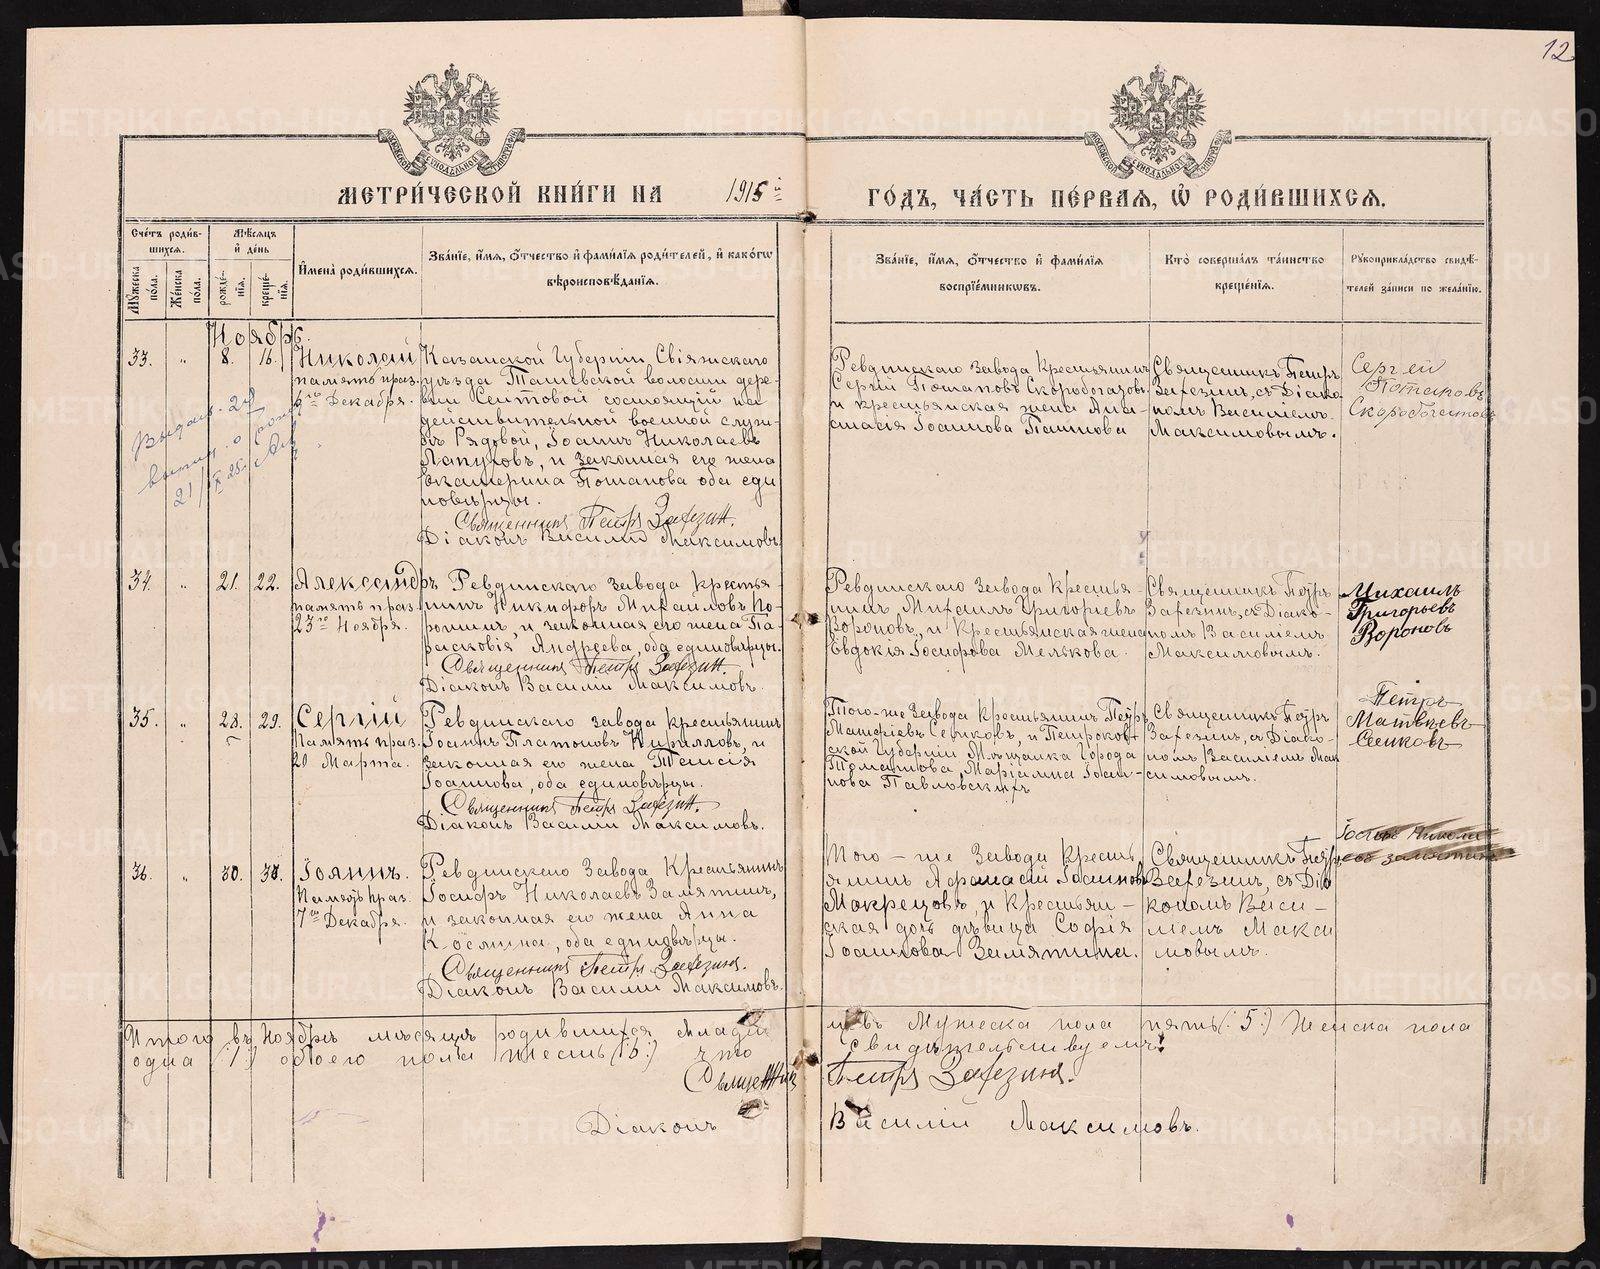 12
МЕТРИ́ЧЕСКОЙ КНИ́ГИ НА 1915й ГО́ДЪ, ЧА́СТЬ ПЕ́РВАѦ, Ѡ҆ РОДИ́ВШИХСѦ.
Сче́тъ роди́вшихсѧ.
Мꙋ́жеска по́ла.
Же́нска по́ла.
Мѣ́сѧцъ и҆ де́нь
рожде́нїѧ.
креще́нїѧ.
И҆мена̀ роди́вшихсѧ.
Зва́нїе, и҆́мѧ, ѻ҆́тчество и҆ фами́лїѧ роди́телей, и҆ како́гѡ
вѣроисповѣ́данїѧ.
Зва́нїе, и҆́мѧ, ѻ҆́тчество и҆ фами́лїѧ
воспрїе́мникѡвъ.
Кто̀ соверша́лъ та́инство
креще́нїѧ.
Рꙋкоприкла́дство свидѣ́-
телей за́писи по жела́нїю.
Ноябрь.
33.
"
8.
16.
Николай
память праз.
6го Декабря.
Казанской Губерніи, Свіяжскаго
уѣзда Ташевской волости дере-
вни Сеитовой состоящій на
дѣйствительной военной служ-
бѣ Рядовой, Іоаннъ Николаевъ
Лапуховъ, и законная его жена
Екатерина Потапова оба еди
новѣрцы.
Священникъ Петръ Заѳезин.
Діаконъ Василій Максимовъ.
Ревдинскаго Завода Крестьянинъ
Сергій Потаповъ Скоробогатовъ
и крестьянская жена Ана-
стасія Іоаннова Паннова
Священникъ Петръ
Заѳезинъ, съ Діако-
номъ Василіемъ
Максимовымъ.
Сергей
Потаповъ
Скоробогатовъ
34.
"
21.
22.
Александръ
память праз.
23го Ноября.
Ревдинскаго завода Крестья-
нинъ Никифоръ Михаиловъ По-
ронинъ, и законная его жена Па-
расковія Андреева, оба единовѣрцы.
Священникъ Петръ Заѳезин.
Діаконъ Василій Максимовъ.
Ревдинскаго завода Крестья-
нинъ Михаилъ Григорьевъ
Вороновъ, и Крестьянская жена
Евдокія Іосифова Мелькова.
Священникъ Петръ
Заѳезинъ, съ Діако-
номъ Василіемъ
Максимовымъ.
Михаилъ
Григорьевъ
Вороновъ
35.
"
28.
29.
Сергій
Память праз.
20 Марта.
Ревдинскаго завода крестьянинъ
Іоаннъ Платоновъ Кирилловъ, и
законная его жена Таисія
Іоаннова, оба единовѣрцы.
Священникъ Петръ Заѳезин.
Діаконъ Василій Максимовъ.
Того-же Завода Крестьянинъ Петръ
Матѳіевъ Сенковъ, и Петроков-
ской Губерніи Мѣщанка Города
Томашова Маріанна Іоан-
нова Павловскихъ
Священникъ Петръ
Заѳезинъ, съ Діако-
номъ Василіемъ Мак
симовымъ.
Петръ
Матвѣевъ
Сенковъ
36.
"
30.
30.
Іоаннъ.
Память праз.
7го Декабря.
Ревдинскаго Завода Крестьянинъ
Іосифъ Николаевъ Замятинъ,
и законная его жена Анна
Косьмина, оба единовѣрцы.
Священникъ Петръ Заѳезинъ.
Діаконъ Василій Максимовъ.
Того-же Завода Кресть
янинъ Аѳанасій Іоанновъ
Мокрецовъ, и Крестьян-
ская дочь дѣвица Софія
Іоаннова Замятина.
Священникъ Петръ
Заѳезинъ, съ Діа
кономъ Васи-
ліемъ Макси
мовымъ.
Итого въ Ноябрѣ мѣсяцѣ родившихся младенцевъ Мужеска пола пять (:5:) Женска пола
одна (:1:) обоего пола шесть (:6:) что свидѣтельствуемъ:
Священникъ Петръ Заѳезинъ.
Діаконъ Василій Максимовъ.
METRIKI.GASO-URAL.RU